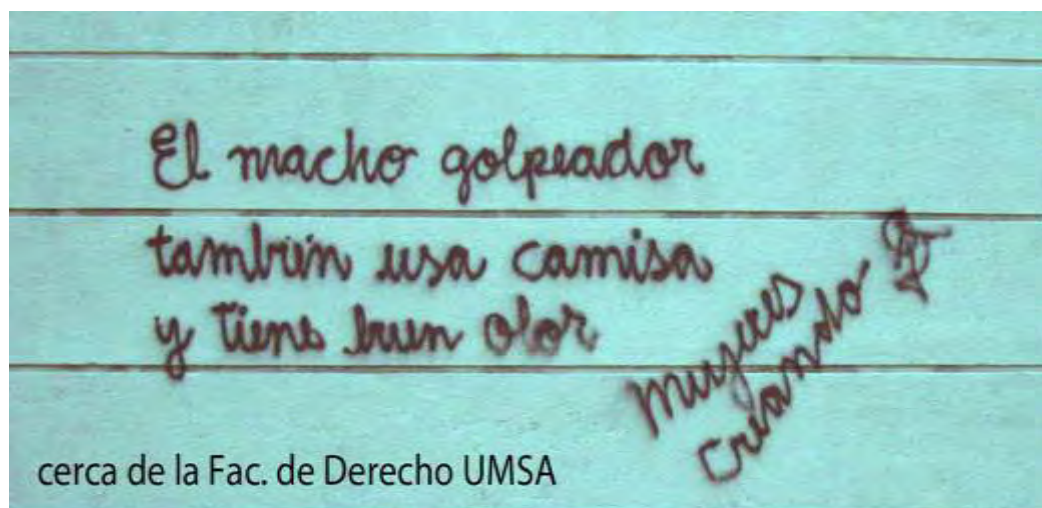 El macho golpeador
también usa camisa
y tiene buen olor
mujeres
creando
cerca de la Fac. de Derecho UMSA